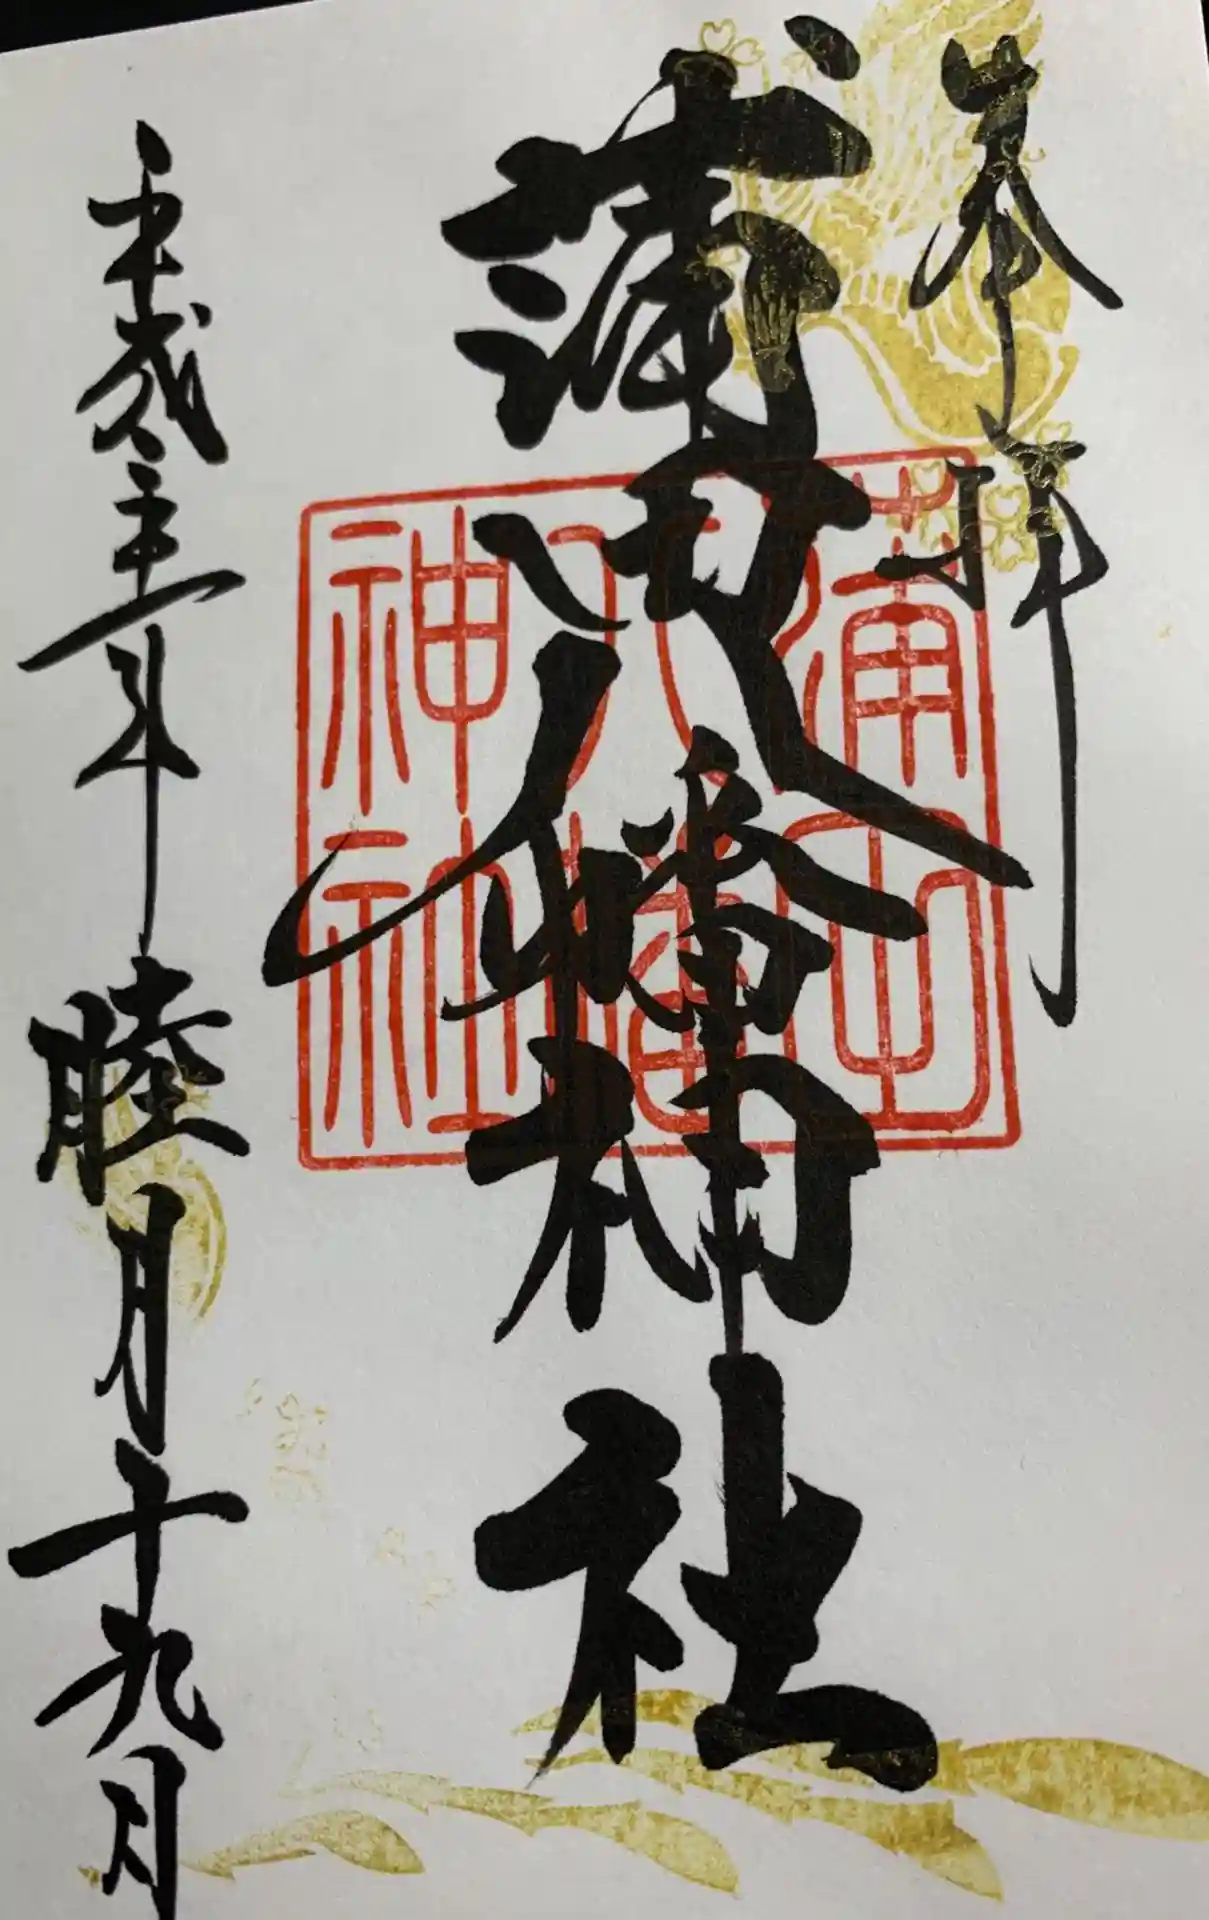 奉拝
蒲田八幡神社
平成三十一年 睦月十九日
蒲田
八幡
神社